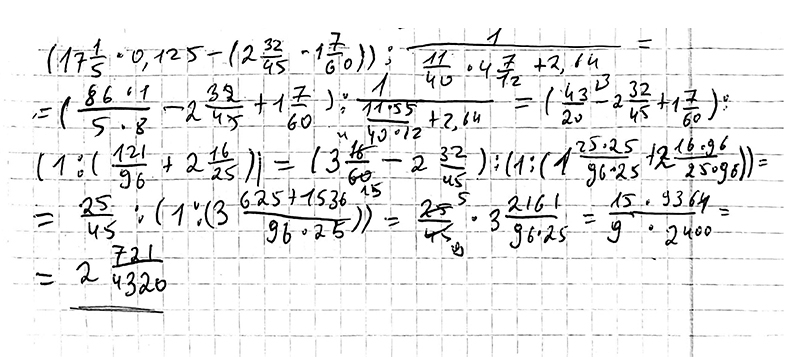 (17 1/5 · 0,125 - (2 32/45 - 1 7/60)) : 1/(11/40 · 4 7/12 + 2,64) =
= (86·1/5·8 - 2 32/45 + 1 7/60) : 1/(11·55/40·12 + 2,64) = (43/20 - 2 32/45 + 1 7/60) :
(1 : (121/96 + 2 16/25)) = (3 16/60 - 2 32/45) : (1 : (1 25·25/96·25 + 2 16·96/25·96)) =
= 25/45 : (1 : (3 625+1536/96·25)) = 25 5/45 9 · 3 2161/96·25 = 15 · 9364/9 · 2400 =
= 2 721/4320